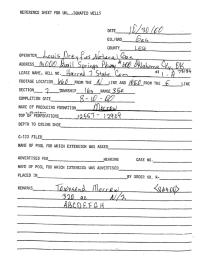 REFERENCE SHEET FOR UNDESIGNATED WELLS
DATE 10/30/80
OIL/GAS Gas
COUNTY Lea
OPERATOR Louis Dreyfus Natural Gas
ADDRESS 14000 Quail Springs Pkwy #600 Oklahoma City, OK
LEASE NAME, WELL NO. State Com #1
FOOTAGE LOCATION, 660 FROM THE N LINE AND FROM THE E LINE
SECTION 2 TOWNSHIP 16s RANGE 35e
COMPLETION DATE 8-10-00
NAME OF PRODUCING FORMATION Morrow
TOP OF PERFORATIONS 12557 - 12909
DEPTH TO CASING SHOE
C-123 FILED
NAME OF POOL FOR WHICH EXTENSION WAS ASKED
ADVERTISED FOR HEARING CASE NO.
NAME OF POOL FOR WHICH EXTENSION WAS ADVERTISED
PLACED IN BY ORDER NO. R-
REMARKS Townsend Morrow
320 ac N/2
ABCDEFGH